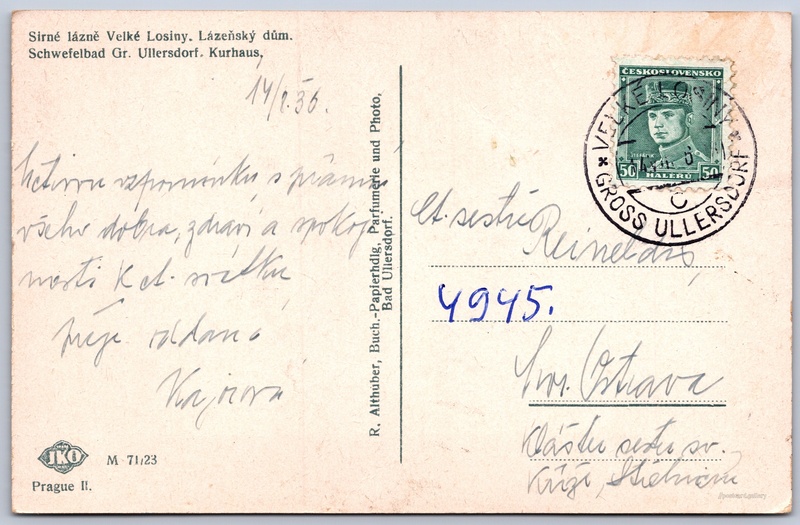 Sirné lázně Velké Losiny. Lázeňský dům.
Schwefelbad Gr. Ullersdorf. Kurhaus.
14/ 36.
vzpomínku s přáním
všeho dobra, zdraví a spokoje
nosti k ct. svátku
oddaná
SKO
M 71/23
Prague II.
R. Althuber, Buch.-Papierhdlg, Parfumerie und Photo,
Bad Ullersdorf.
ČESKOSLOVENSKO
50 50
HALERŮ
VELKÉ LOSINY
GROSS ULLERSDORF
C
Ct. sestře
Reineldis
4945.
Mor. Ostrava
Klášter sester sv.
Kříže,